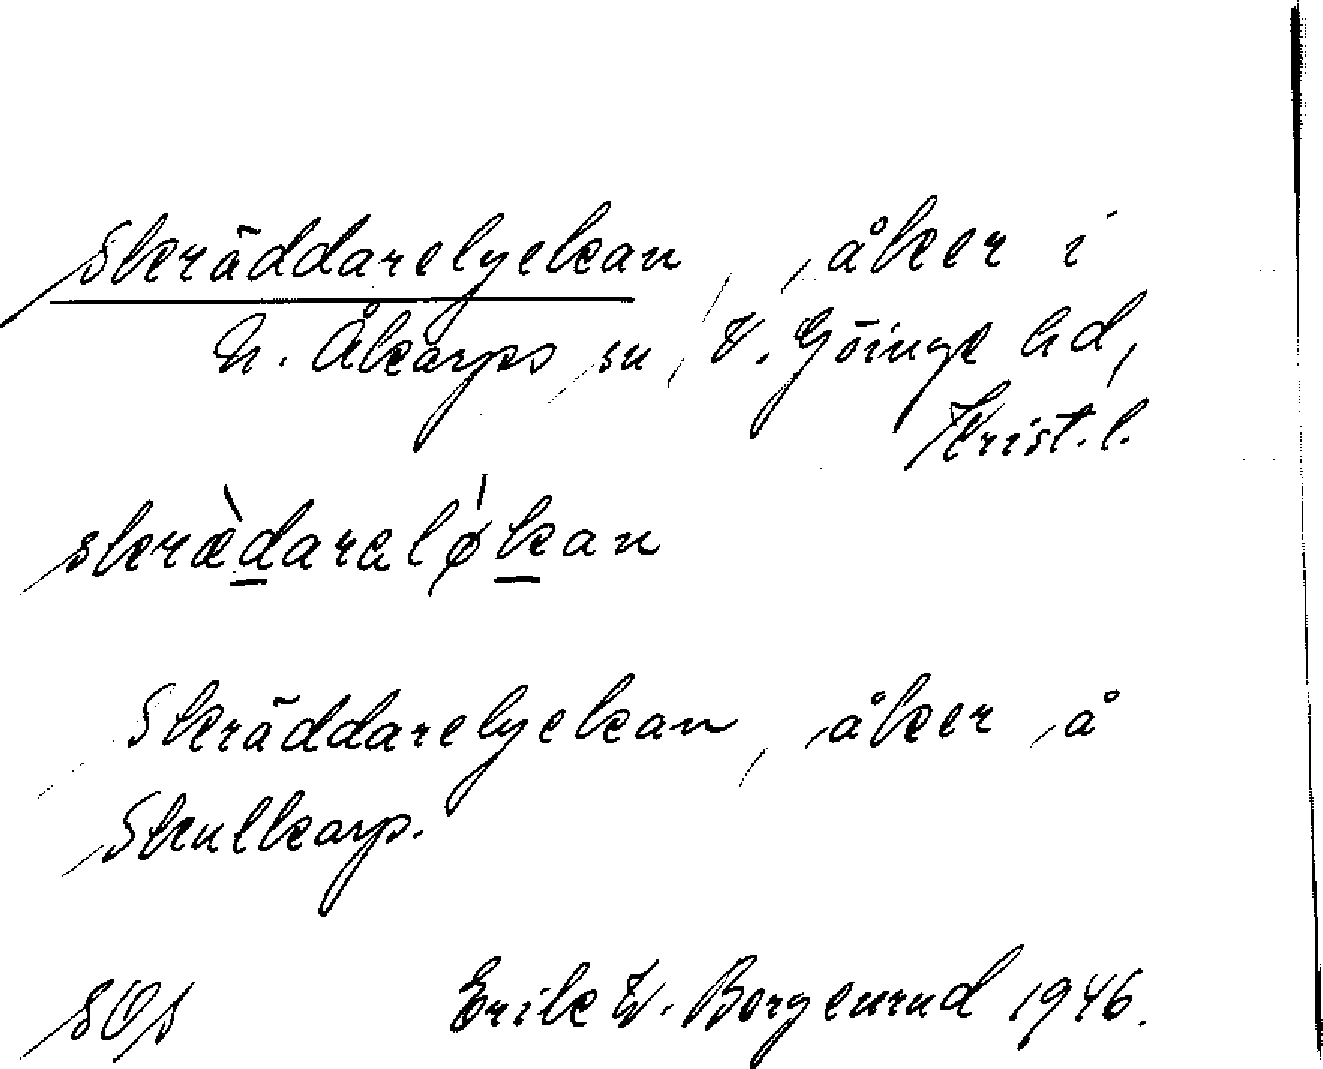 Skräddarelyckan, åker i
N. Åkarps sn, V. Göinge hd,
Krist. l.
skrædareløkan
Skräddarelyckan, åker å
Skulkarp.
Erik W. Borgenrud 1946.